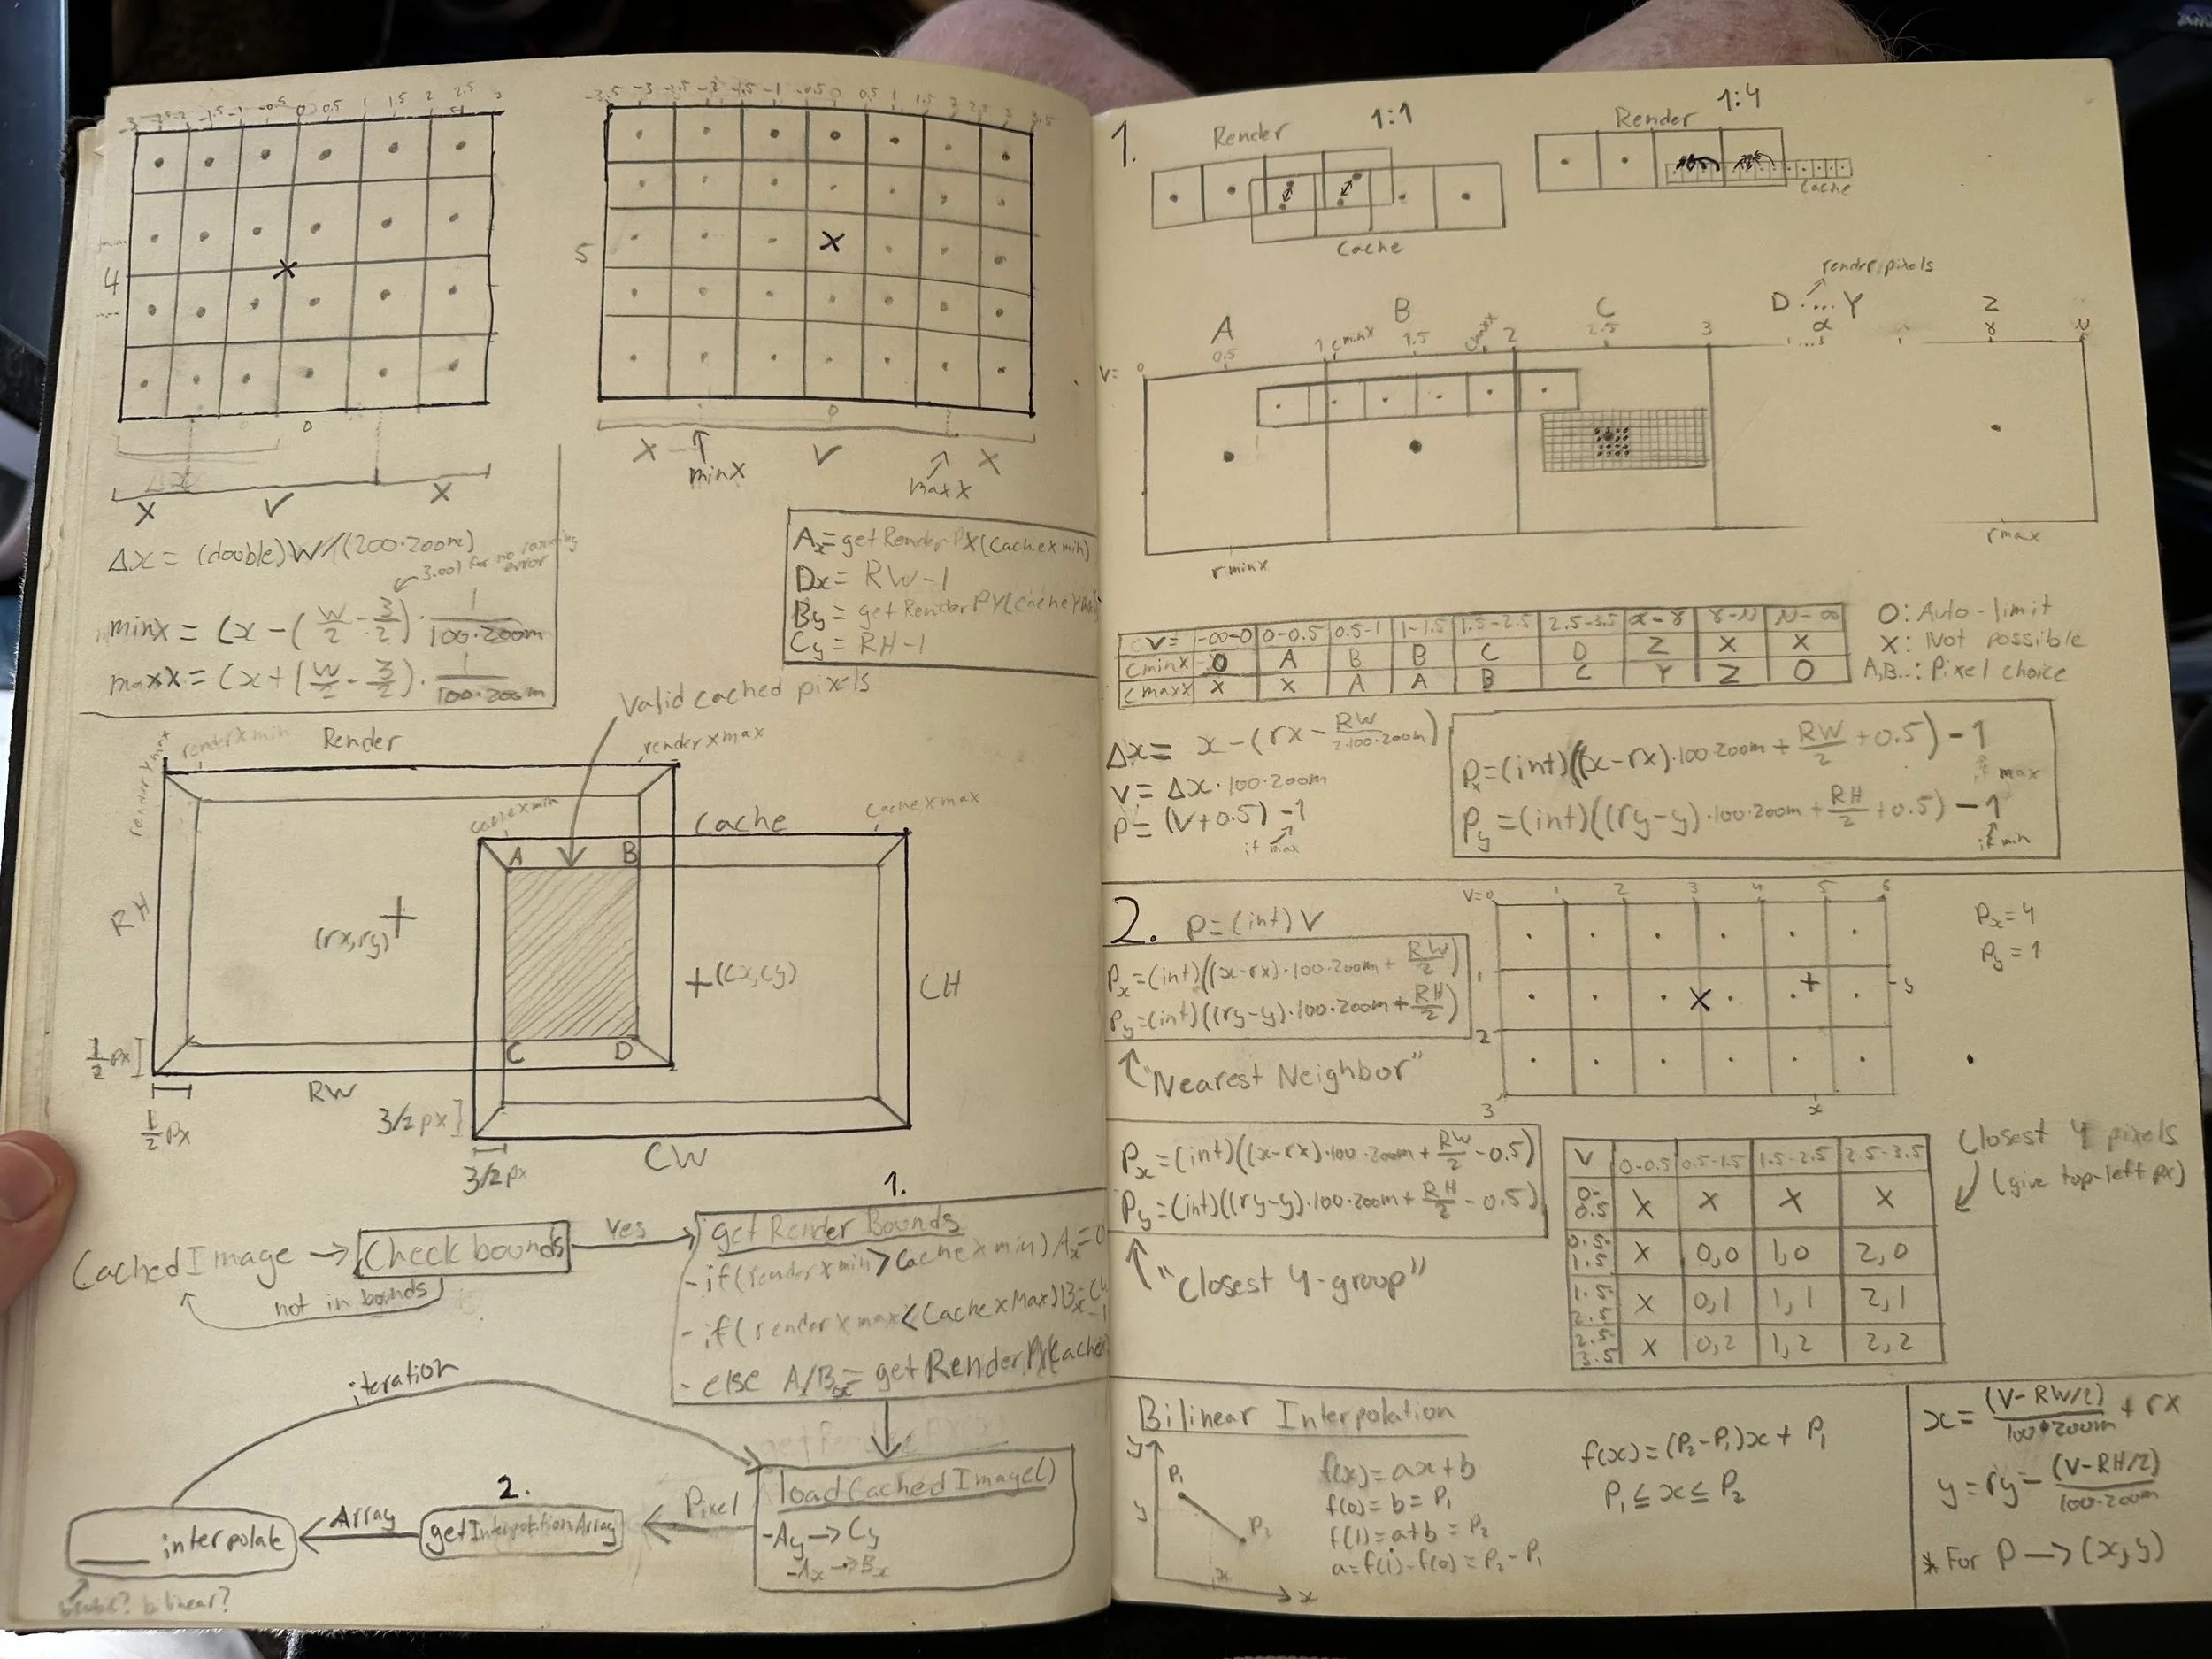 0 0.5 1 1.5 2 2.5 3
4
0
X V X
Δx = (double)W/(200·zoom)
3.001 for no rounding error
minx = (x - (W/2 - 3/2) · 1/(100·zoom)
maxx = (x + (W/2 - 3/2) · 1/(100·zoom)
-3.5 -3
-1 -0.5 0 0.5 1 1.5
5
0
X V X
minx
maxx
Ax = getRenderPX(cachexmin)
Dx = RW-1
By = getRenderPY(cacheYmin)
Cy = RH-1
Valid cached pixels
renderxmin
Render
renderxmax
cachexmin
Cache
cachexmax
A B
RH
(rx,ry)
(cx,cy)
CH
C D
1/2 px
RW
1/2 px
3/2 px
3/2 px
CW
1.
Cached Image → Check bounds
yes
not in bounds
getRenderBounds
- if(renderxmin > cachexmin) Ax=0
- if(renderxmax < CachexMax)
- else A/Bx = getRenderPX(cache
iteration
loadCachedImage()
-Ay → Cy
-Ax → Bx
Pixel
2.
getInterpolationArray
Array
interpolate
bilinear?
1.
Render 1:1
Cache
Render 1:4
Cache
render pixels
A B C D....Y Z
0.5 1 cminx 1.5 cmax 2 2.5 3 α γ N
V= 0
rminx
rmax
V= -∞-0 0-0.5 0.5-1 1-1.5 1.5-2.5 2.5-3.5 α-γ γ-N N-∞
cminx O A B B C D Z X X
cmaxx X X A A B C Y Z O
O: Auto-limit
X: Not possible
A,B..: Pixel choice
Δx = x - (rx - RW/(2·100·zoom))
V = Δx·100·zoom
P = (V+0.5) -1
if max
Px = (int)((x-rx)·100·zoom + RW/2 + 0.5) - 1
if max
Py = (int)((ry-y)·100·zoom + RH/2 + 0.5) - 1
if min
2. P = (int) V
Px = (int)((x-rx)·100·zoom + RW/2)
Py = (int)((ry-y)·100·zoom + RH/2)
"Nearest Neighbor"
V=0 1 2 3 4 5 6
1
y
2
3
x
Px = 4
Py = 1
Px = (int)((x-rx)·100·zoom + RW/2 - 0.5)
Py = (int)((ry-y)·100·zoom + RH/2 - 0.5)
"Closest 4-group"
Closest 4 pixels
(give top-left px)
V 0-0.5 0.5-1.5 1.5-2.5 2.5-3.5
0-0.5 X X X X
0.5-1.5 X 0,0 1,0 2,0
1.5-2.5 X 0,1 1,1 2,1
2.5-3.5 X 0,2 1,2 2,2
Bilinear Interpolation
y
P1
y
P2
x
x
f(x) = ax+b
f(0) = b = P1
f(1) = a+b = P2
a = f(1)-f(0) = P2-P1
f(x) = (P2-P1)x + P1
P1 ≤ x ≤ P2
x = (V-RW/2)/(100·zoom) + rx
y = ry - (V-RH/2)/(100·zoom)
* For P → (x,y)